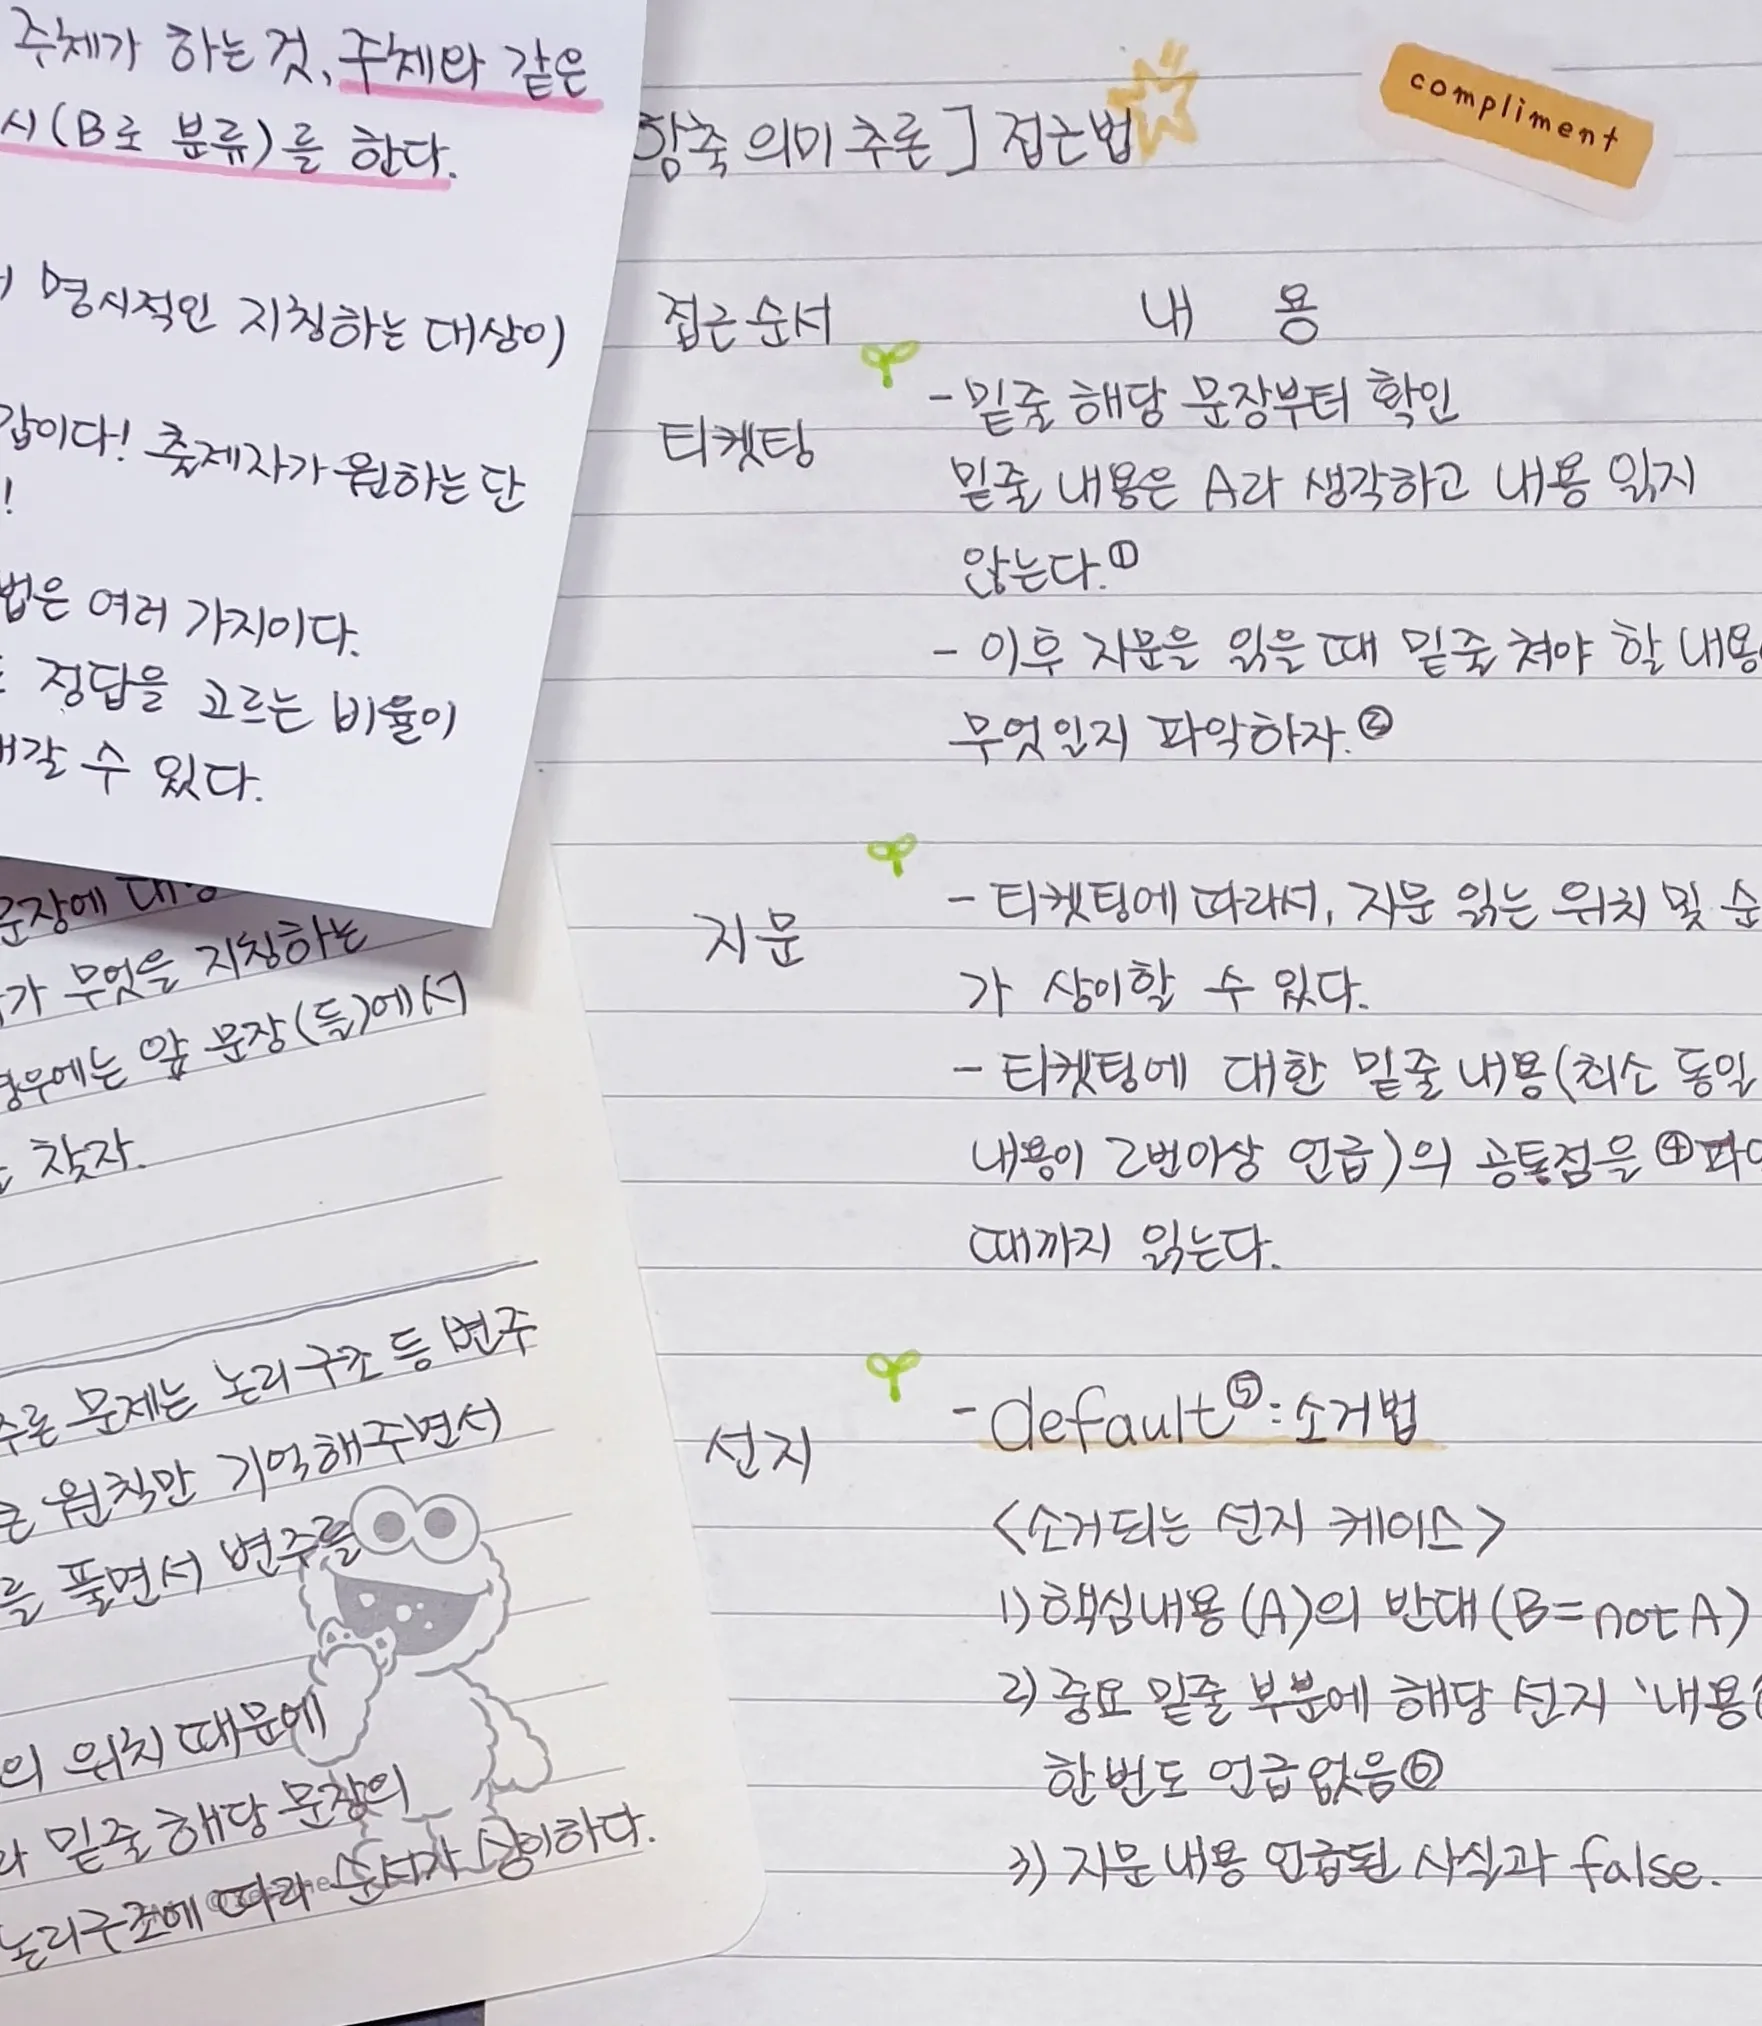 주체가 하는 것, 주체와 같은
시(B로 분류)를 한다.
명시적인 지칭하는 대상이
갑이다! 출제자가 원하는 단
!
법은 여러 가지이다.
정답을 고르는 비율이
갈 수 있다.
문장에
가 무엇을 지칭하는
경우에는 앞 문장(들)에서
찾자.
추론 문제는 논리구조 등 변주
큰 원칙만 기억해주면서
를 풀면서 변주를
의 위치 때문에
라 밑줄 해당 문장의
논리구조에 따라 순서가 상이하다.
함축 의미 추론] 접근법
compliment
접근순서 내 용
티켓팅
- 밑줄 해당 문장부터 확인
밑줄 내용은 A라 생각하고 내용 읽지
않는다.①
- 이후 지문을 읽을 때 밑줄 쳐야 할 내용
무엇인지 파악하자.②
지문
- 티켓팅에 따라서, 지문 읽는 위치 및 순
가 상이할 수 있다.
- 티켓팅에 대한 밑줄 내용(최소 동일
내용이 2번이상 언급)의 공통점을 ④파
때까지 읽는다.
선지
- default⑤: 소거법
<소거되는 선지 케이스>
1) 핵심내용(A)의 반대(B=not A)
2) 중요 밑줄 부분에 해당 선지 '내용
한번도 언급없음⑥
3) 지문 내용 언급된 사실과 false.